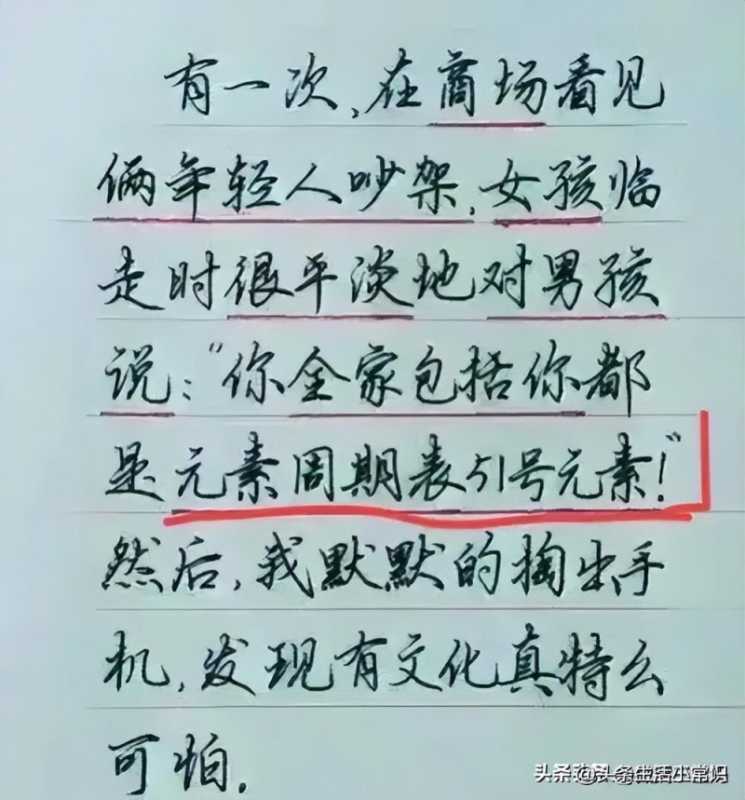 有一次,在商场看见
俩年轻人吵架,女孩临
走时很平淡地对男孩
说:"你全家包括你都
是元素周期表51号元素!"
然后,我默默的掏出手
机,发现有文化真特么
可怕.
头条@头条生活小常识